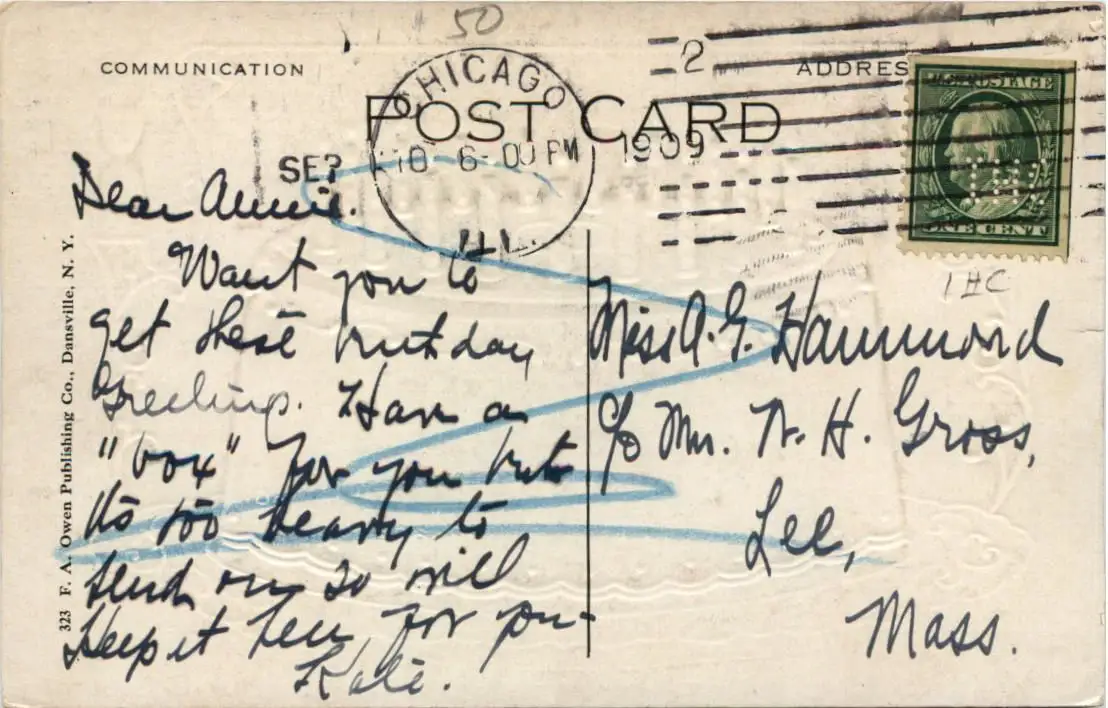 50
COMMUNICATION
2
ADDRES
POST CARD
CHICAGO
SEP
10 6-00 PM
1909
ILL.
U.S. POSTAGE
ONE CENT
IHC
IHC
Dear Annie.
Want you to
get these birthday
Greeting. Have a
"box" for you but
its too heavy to
send on so will
keep it here for you-
Kate.
Miss A. G. Hammond
c/o Mrs. N. H. Gross,
Lee,
Mass.
323 F. A. Owen Publishing Co., Dansville, N. Y.